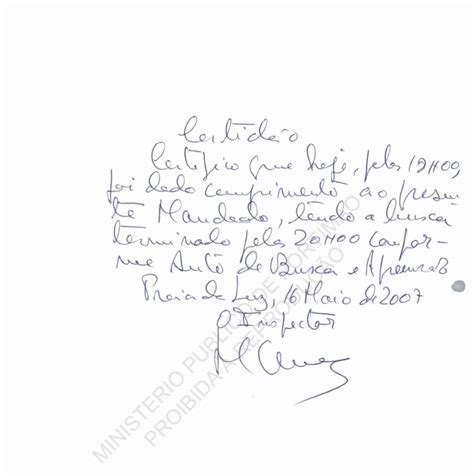 Certidão
Certifico que hoje, pelas 19H00,
foi dado cumprimento ao presen-
te Mandado, tendo a busca
terminado pelas 20H00 confor-
me Auto de Busca e Apreensão
Praia da Luz, 16 Maio de 2007
O Inspector
MINISTERIO PUBLICO DE PORTIMÃO
PROIBIDA A REPRODUÇÃO